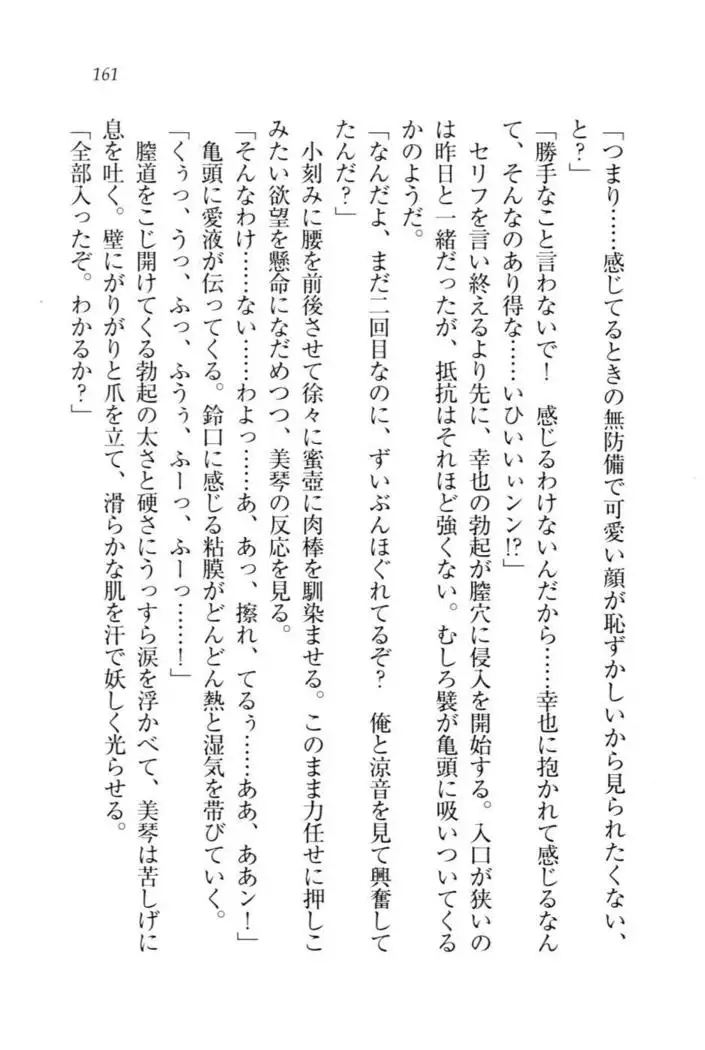 161
「つまり……感じてるときの無防備で可愛い顔が恥ずかしいから見られたくない、
と？」
「勝手なこと言わないで！　感じるわけないんだから……幸也に抱かれて感じるなん
て、そんなのあり得な……いひいいぃンン!?」
　セリフを言い終えるより先に、幸也の勃起が膣穴に侵入を開始する。入口が狭いの
は昨日と一緒だったが、抵抗はそれほど強くない。むしろ襞が亀頭に吸いついてくる
かのようだ。
「なんだよ、まだ二回目なのに、ずいぶんほぐれてるぞ？　俺と涼音を見て興奮して
たんだ？」
　小刻みに腰を前後させて徐々に蜜壺に肉棒を馴染ませる。このまま力任せに押しこ
みたい欲望を懸命になだめつつ、美琴の反応を見る。
「そんなわけ……ない……わよっ……あ、あっ、擦れ、てるぅ……ああ、ああン！」
　亀頭に愛液が伝ってくる。鈴口に感じる粘膜がどんどん熱と湿気を帯びていく。
「くぅっ、うっ、ふっ、ふうぅ、ふーっ、ふーっ……！」
　膣道をこじ開けてくる勃起の太さと硬さにうっすら涙を浮かべて、美琴は苦しげに
息を吐く。壁にがりがりと爪を立て、滑らかな肌を汗で妖しく光らせる。
「全部入ったぞ。わかるか？」